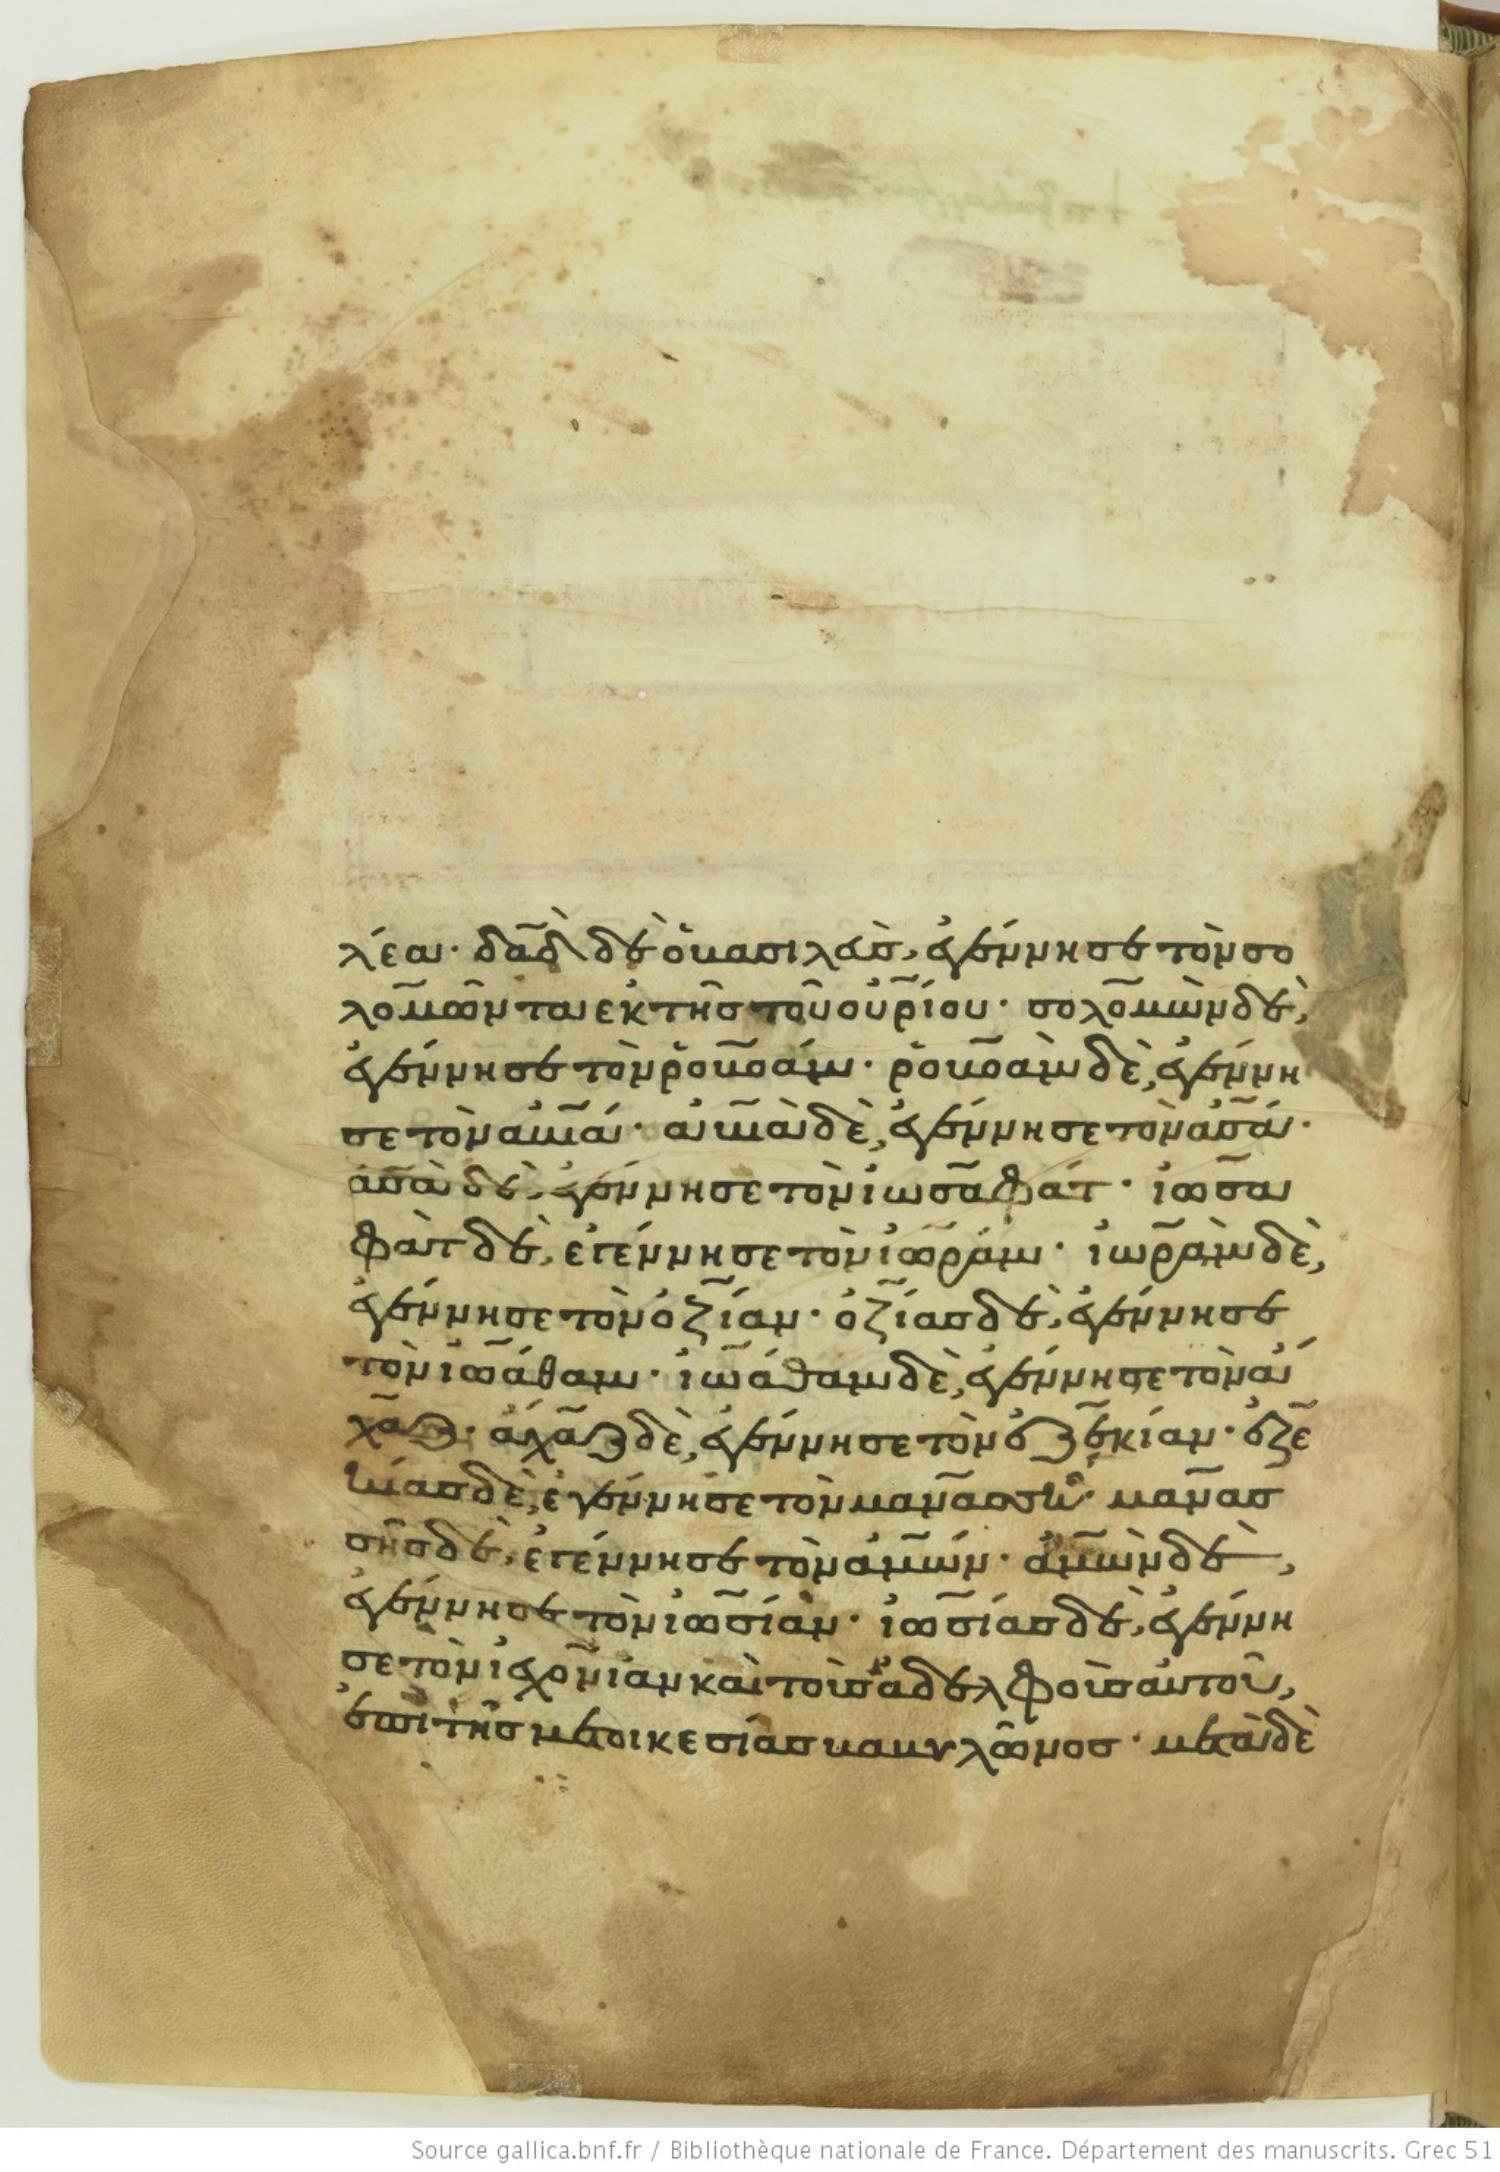 λέα· δᾱδ δὲ ὁ βασιλεὺς, ἐγέννησε τὸν σο
λομῶντα ἐκ τῆς τοῦ οὐρίου· σολομὼν δὲ,
ἐγέννησε τὸν ῥοβοάμ· ῥοβοὰμ δὲ, ἐγέννη
σε τὸν ἀβιά· ἀβιὰ δὲ, ἐγέννησε τὸν ἀσά·
ἀσὰ δὲ, ἐγέννησε τὸν ἰωσαφάτ· ἰωσα
φὰτ δὲ, ἐγέννησε τὸν ἰωράμ· ἰωρὰμ δὲ,
ἐγέννησε τὸν ὀζίαν· ὀζίας δὲ, ἐγέννησε
τὸν ἰωάθαμ· ἰωάθαμ δὲ, ἐγέννησε τὸν ἄ
χαζ· ἄχαζ δὲ, ἐγέννησε τὸν ἐζεκίαν· ἐζε
κίας δὲ, ἐγέννησε τὸν μανασσῆ· μανασ
σῆς δὲ, ἐγέννησε τὸν ἀμών· ἀμὼν δὲ,
ἐγέννησε τὸν ἰωσίαν· ἰωσίας δὲ, ἐγέννη
σε τὸν ἰεχονίαν καὶ τοὺς ἀδελφοὺς αὐτοῦ,
ἐπὶ τῆς μετοικεσίας βαβυλῶνος· μετὰ δὲ
Source gallica.bnf.fr / Bibliothèque nationale de France. Département des manuscrits. Grec 51